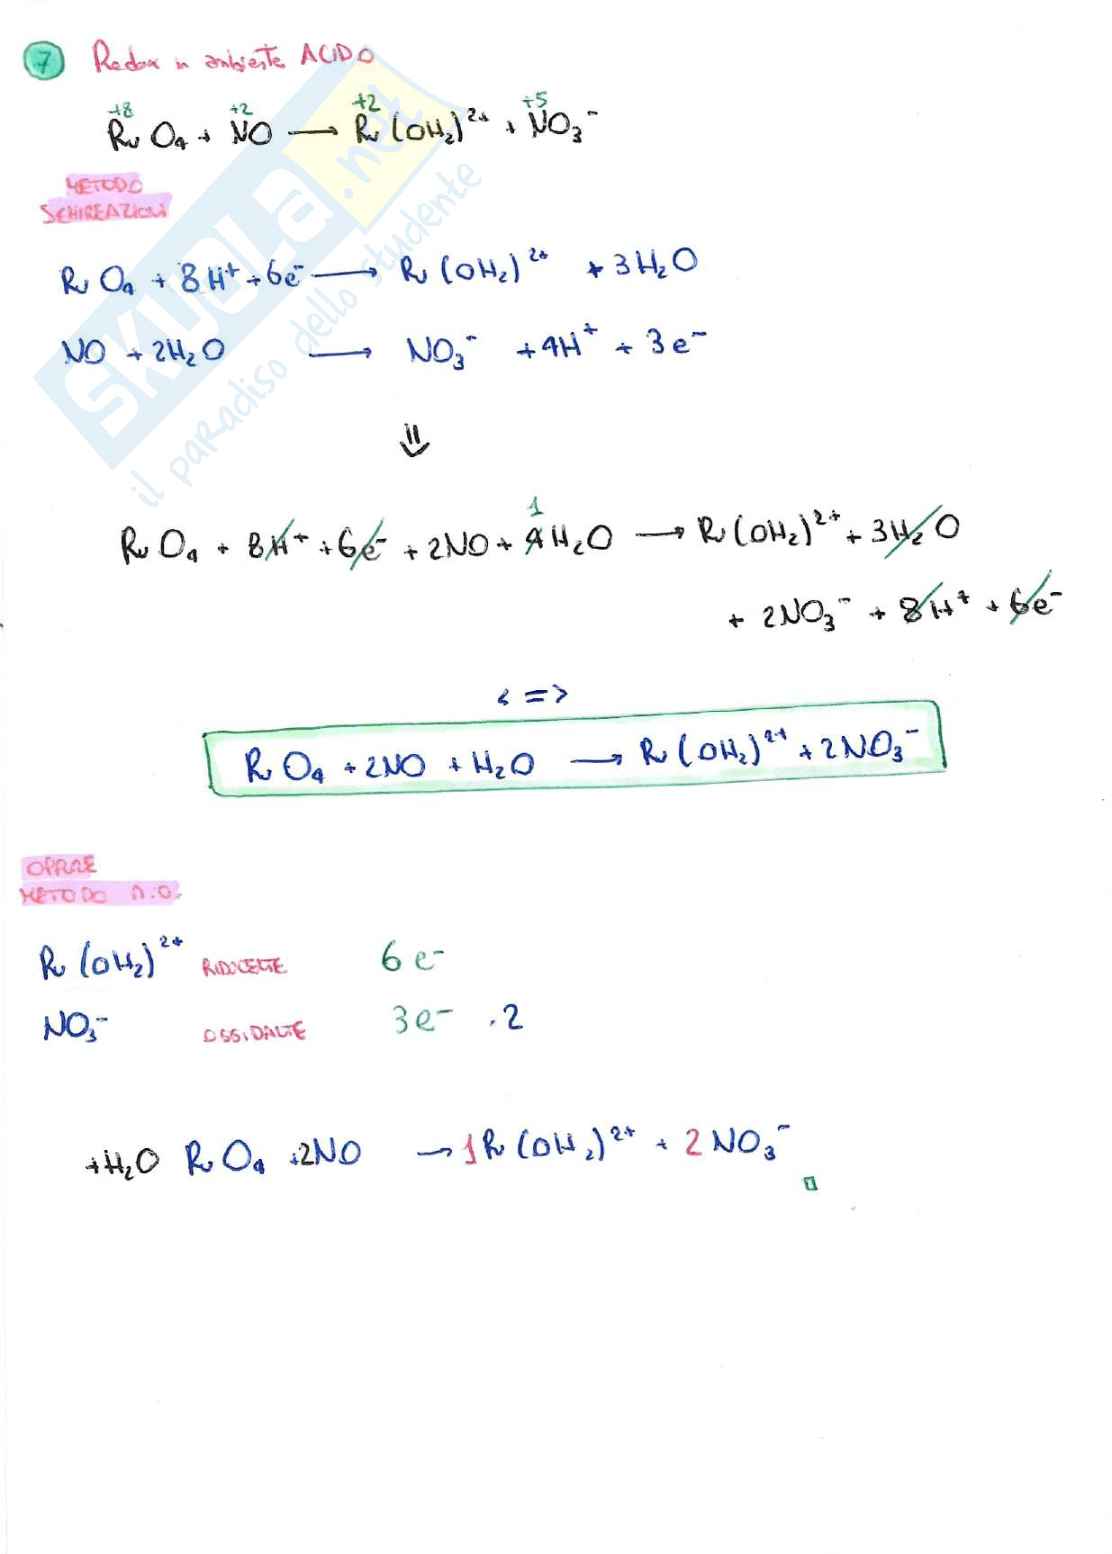 7 Redox in ambiente ACIDO
+8 +2 +2 +5
Ru O₄ + NO → Ru (OH₂)²⁺ + NO₃⁻
METODO
SEMIREAZIONI
Ru O₄ + 8H⁺ + 6e⁻ → Ru (OH₂)²⁺ + 3H₂O
NO + 2H₂O → NO₃⁻ + 4H⁺ + 3e⁻
⇓
1
Ru O₄ + 8H⁺ + 6e⁻ + 2NO + 4H₂O → Ru (OH₂)²⁺ + 3H₂O
+ 2NO₃⁻ + 8H⁺ + 6e⁻
<=>
Ru O₄ + 2NO + H₂O → Ru (OH₂)²⁺ + 2NO₃⁻
OPPURE
METODO N.O.
Ru (OH₂)²⁺ RIDUCENTE 6e⁻
NO₃⁻ OSSIDANTE 3e⁻ .2
+H₂O Ru O₄ +2NO → 1Ru (OH₂)²⁺ + 2 NO₃⁻
SKUOLA.net
il paradiso dello studente